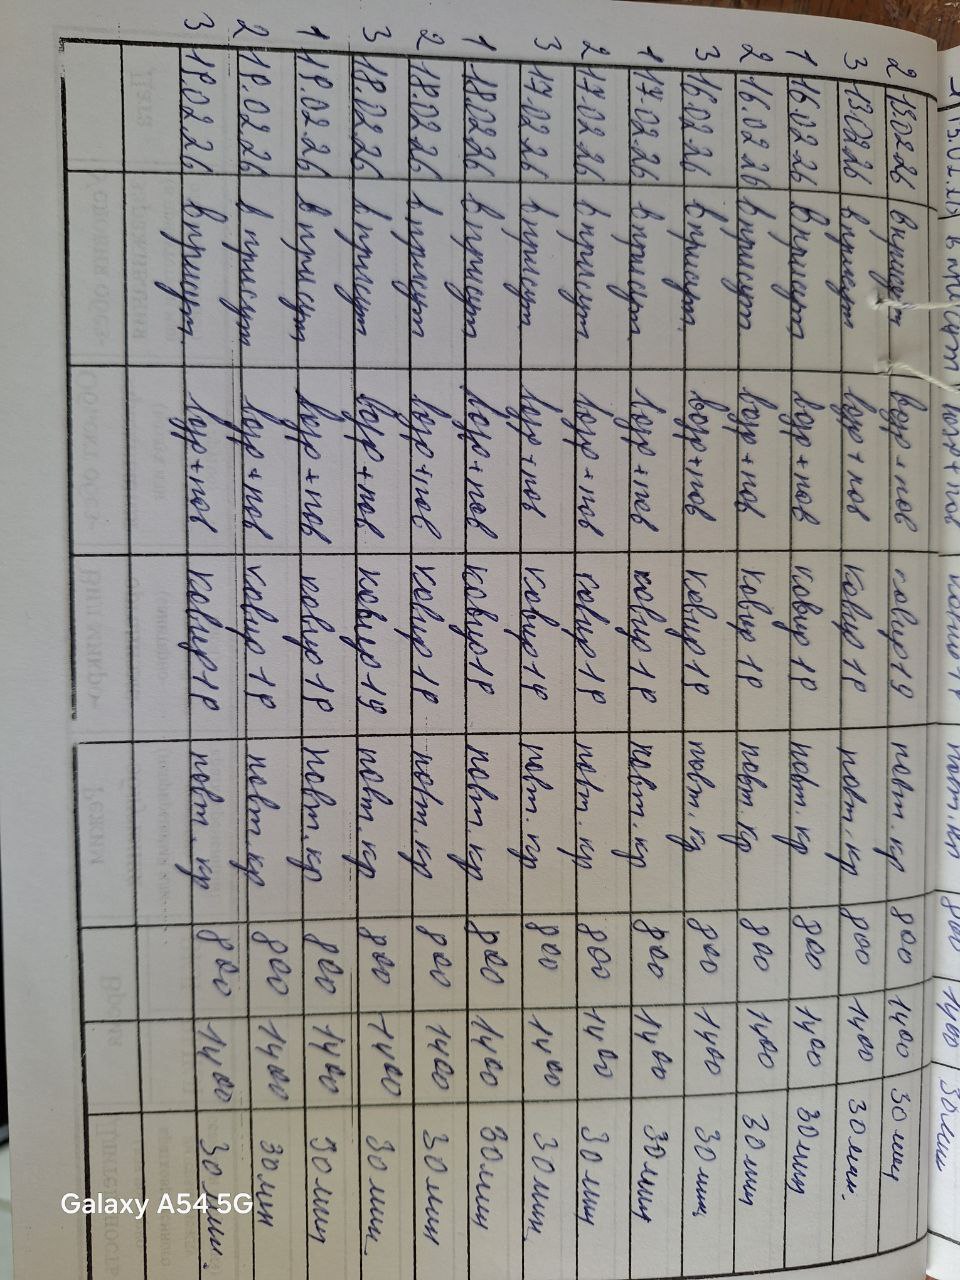 13.02.26 в присут возр + пов ковид 19 повт. кр 800 1400 30 мин
2 13.02.26 в присут возр + пов ковид 19 повт. кр 800 1400 30 мин
3 13.02.26 в присут возр + пов ковид 19 повт. кр 800 1400 30 мин.
1 16.02.26 в присут возр + пов ковид 19 повт. кр 800 1400 30 мин
2 16.02.26 в присут возр + пов ковид 19 повт. кр 800 1400 30 мин
3 16.02.26 в присут возр + пов ковид 19 повт. кр 800 1400 30 мин
1 17.02.26 в присут возр + пов ковид 19 повт. кр 800 1400 30 мин
2 17.02.26 в присут возр + пов ковид 19 повт. кр 800 1400 30 мин
3 17.02.26 в присут возр + пов ковид 19 повт. кр 800 1400 30 мин
1 18.02.26 в присут возр + пов ковид 19 повт. кр 800 1400 30 мин
2 18.02.26 в присут возр + пов ковид 19 повт. кр 800 1400 30 мин
3 18.02.26 в присут возр + пов ковид 19 повт. кр 800 1400 30 мин
1 19.02.26 в присут возр + пов ковид 19 повт. кр 800 1400 30 мин
2 19.02.26 в присут возр + пов ковид 19 повт. кр 800 1400 30 мин
3 19.02.26 в присут возр + пов ковид 19 повт. кр 800 1400 30 мин.
Galaxy A54 5G